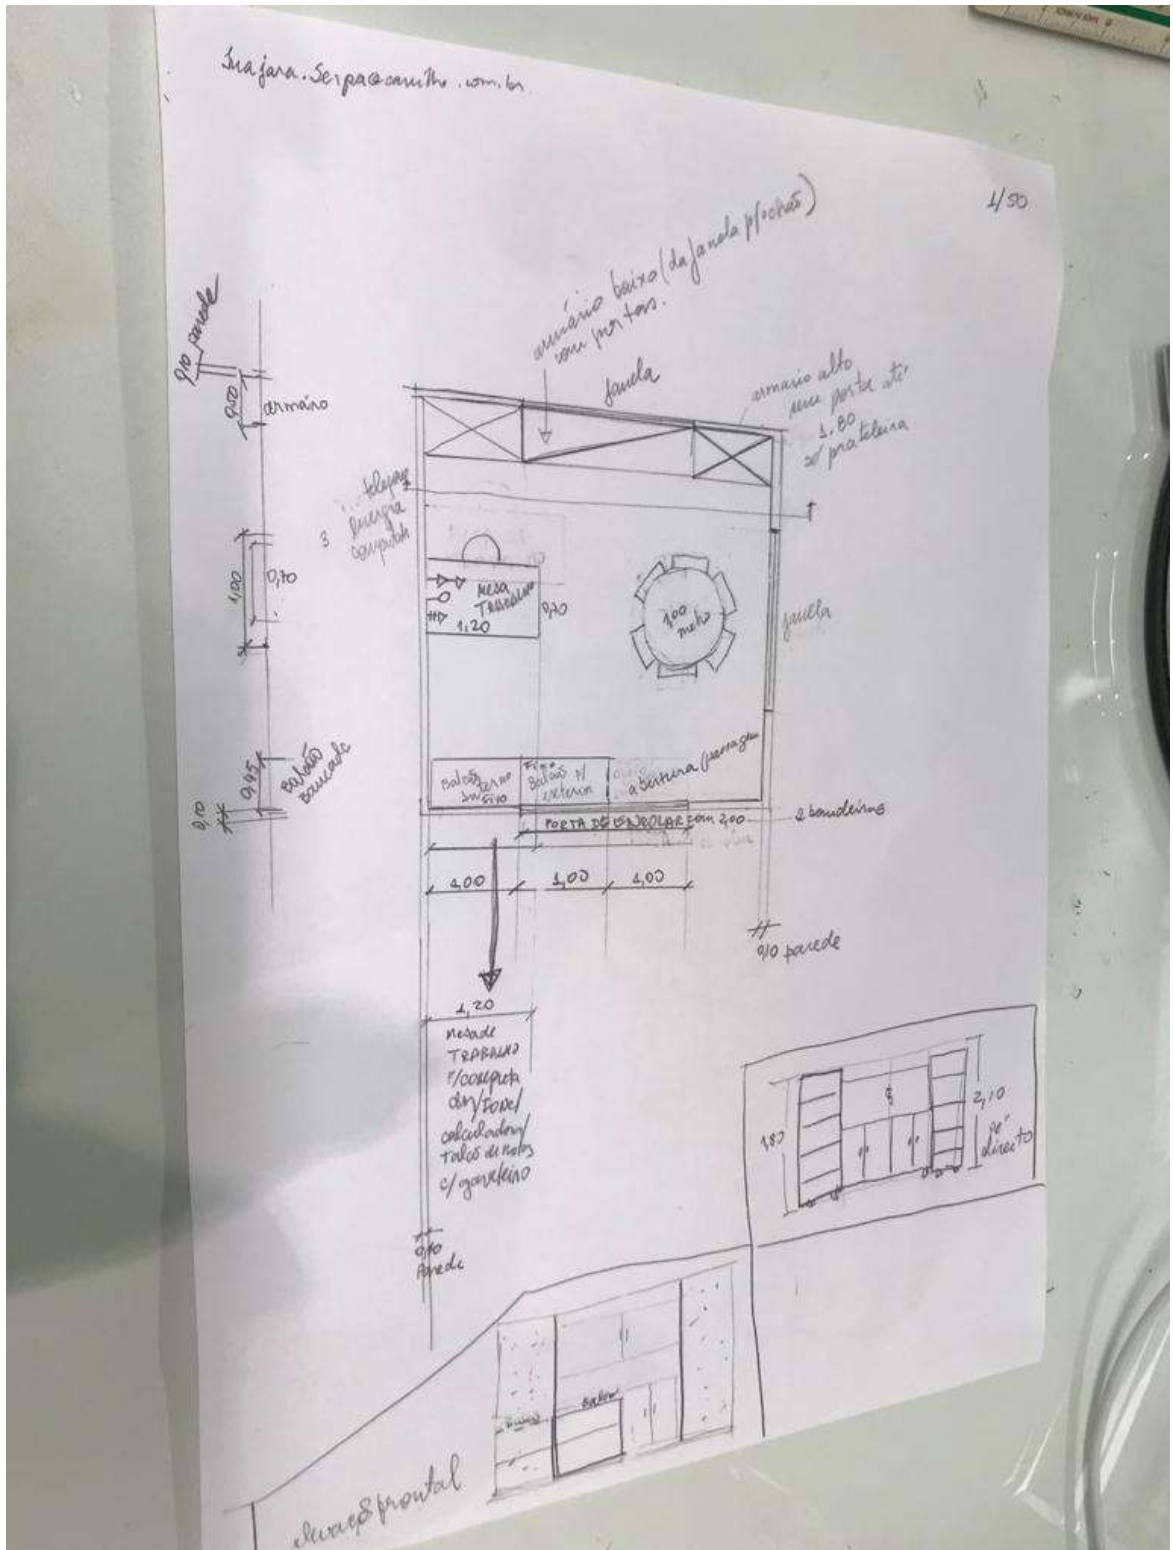 1/50
armário baixo (da janela p/ chão)
com portas.
janela
armario alto
sem porta até
1.80
só prateleira
0,10 parede
0,50
armário
energia
3
1,00
0,70
MESA
TRABALHO
1,20
0,70
1,00
metro
janela
0,45
Balcão
Bancada
0,10
Balcão
Interno
Fixo
Fixo
Balcão p/
externa
abertura (passagem
PORTA DE ENROLAR com 2,00
2 bandeiras
1,00
1,00
1,00
0,10 parede
1,20
Mesa de
TRABALHO
P/ computa
dor/FONE/
calculadora/
Talão de notas
c/ gaveteiro
0,10
Parede
1,80
2,10
pé
direito
Balcão
elevação frontal